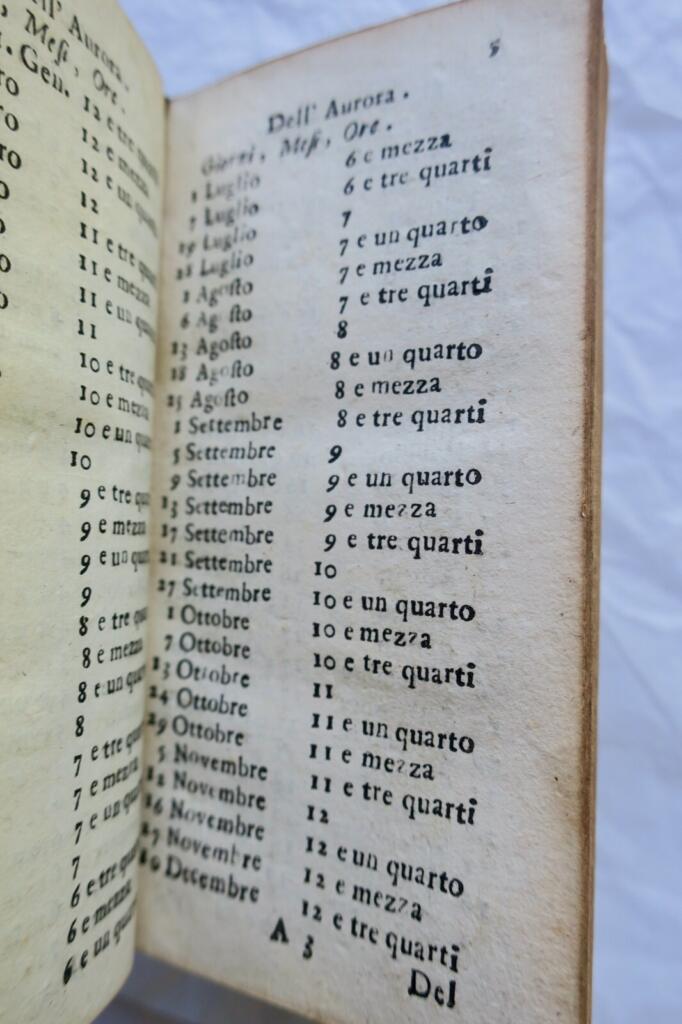 Aurora.
Meſi, Ore.
Gen. 12 e tre
12 e mezza
12 e un
12
11 e tre
11 e mezza
11 e un
11
10 e tre
10 e mezza
10 e un
10
9 e tre
9 e mezza
9 e un
9
8 e tre
8 e mezza
8 e un
8
7 e tre
7 e mezza
7 e un
7
6 e tre
6 e mezza
6 e un
5
Dell' Aurora.
Giorni, Meſi, Ore.
1 Luglio 6 e mezza
7 Luglio 6 e tre quarti
19 Luglio 7
28 Luglio 7 e un quarto
1 Agoſto 7 e mezza
6 Agoſto 7 e tre quarti
13 Agoſto 8
18 Agoſto 8 e un quarto
25 Agoſto 8 e mezza
1 Settembre 8 e tre quarti
5 Settembre 9
9 Settembre 9 e un quarto
13 Settembre 9 e mezza
17 Settembre 9 e tre quarti
21 Settembre 10
27 Settembre 10 e un quarto
1 Ottobre 10 e mezza
7 Ottobre 10 e tre quarti
13 Ottobre 11
24 Ottobre 11 e un quarto
29 Ottobre 11 e mezza
5 Novembre 11 e tre quarti
12 Novembre 12
16 Novembre 12 e un quarto
27 Novembre 12 e mezza
Decembre 12 e tre quarti
A 3
Del